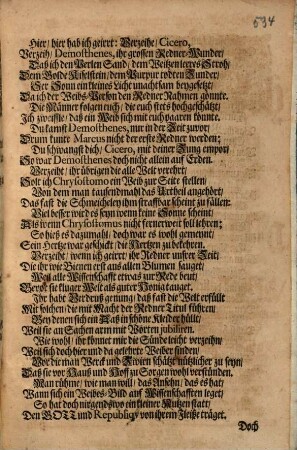 594
Hier/ hier hab ich geirrt: Verzeihe/ Cicero,
Verzeih/ Demosthenes, ihr grossen Redner-Wunder/
Daß ich den Perlen Sand/ dem Weitzen leeres Stroh/
Dem Golde Kieselstein/ dem Purpur todten Zunder/
Der Sonn ein kleines Licht unachtsam beygesetzt;
Da ich der Weibs-Person den Redner Nahmen gönnte.
Die Männer folgen euch/ die euch stets hochgeschätzt/
Ich zweiffle/ daß ein Weib sich mit euch paaren könnte.
Du kamst Demosthenes, nur in der Zeit zuvor;
Drum kunte Marcus nicht der erste Redner werden;
Du schwangst dich/ Cicero, mit deiner Zung empor/
So war Demosthenes doch nicht allein auf Erden.
Verzeiht/ ihr übrigen die alle Welt verehrt/
Solt ich Chrysostomo ein Weib zur Seite stellen/
Von dem man tausendmahl das Urtheil angehört/
Das fast die Schmeicheley ihm straffbar scheint zu fällen:
Viel besser wird es seyn wenn keine Sonne scheint/
Als wenn Chrysostomus nicht feuerweit soll lehren;
So hieß es dazumahl/ doch war es wohl gemeint/
Sein Hertze war geschickt/ die Hertzen zu bekehren.
Verzeiht/ wenn ich geirrt/ ihr Redner unsrer Zeit/
Die ihr wie Bienen erst aus allen Blumen sauget/
Weil alle Wissenschafft etwas zur Rede beut/
Bevor sie kluger Welt als guter Honig tauget.
Ihr habt Verdruß genung/ daß fast die Welt erfüllt
Mit solchen/ die mit Macht der Redner Stul führen/
Bey denen sich ein Faß in schöne Kleider hüllt/
Weil sie an Sachen arm mit Worten jubiliren.
Wie wohl/ ihr könnet mir die Sünde leicht verzeihn/
Weil sich doch hier und da gelehrte Weiber finden/
Vor die man Werck und Zwirn schätzt nützlicher zu seyn/
Daß sie vor Hauß und Hoff zu Sorgen wohl verstünden.
Man rühme/ wie man will/ das Ansehn/ das es hat/
Wann sich ein Weibes-Bild auf Wissenschafften leget/
So hat doch nirgendswo ein kleiner Nutzen statt/
Den GOTT und Republiqv von ihrem Fleiße träget.
Doch